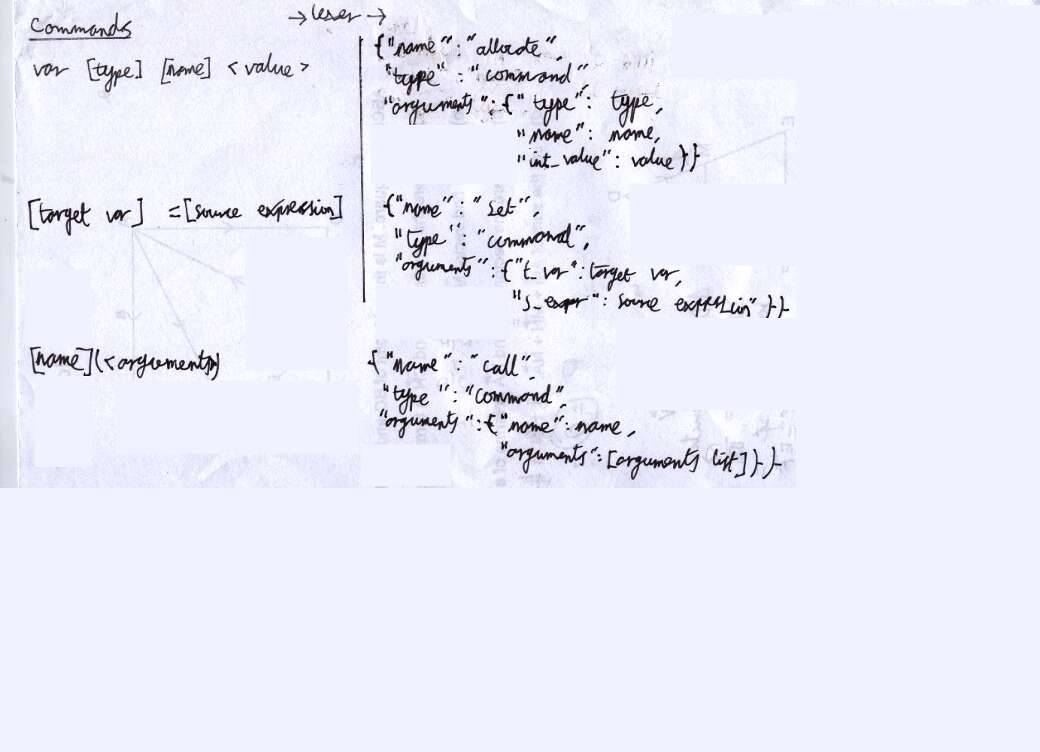 Commands
→ lexer →
var [type] [name] <value>
{"name": "allocate",
"type": "command",
"arguments": {"type": type,
"name": name,
"int_value": value}}
[target var] =[source expression]
{"name": "set",
"type": "command",
"arguments": {"t_var": target var,
"s_expr": source expression"}}
[name](<arguments>)
{"name": "call",
"type": "command",
"arguments": {"name": name,
"arguments": [arguments list]}}